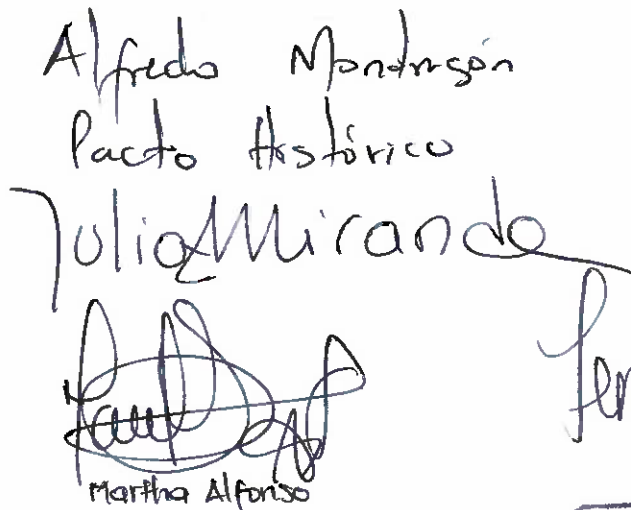 Alfredo Mondragón
Pacto Histórico
Julia Miranda
Martha Alfonso